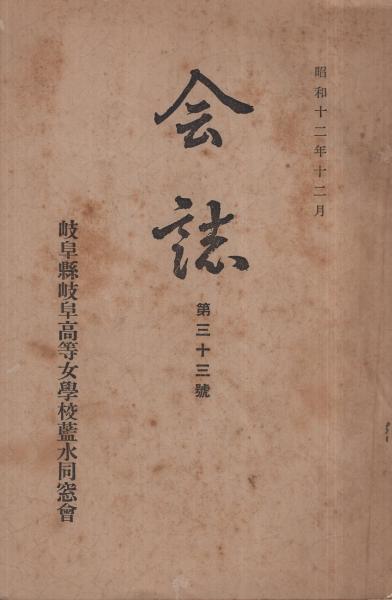 昭和十二年十二月
会誌
第三十三號
岐阜縣岐阜高等女學校藍水同窓會